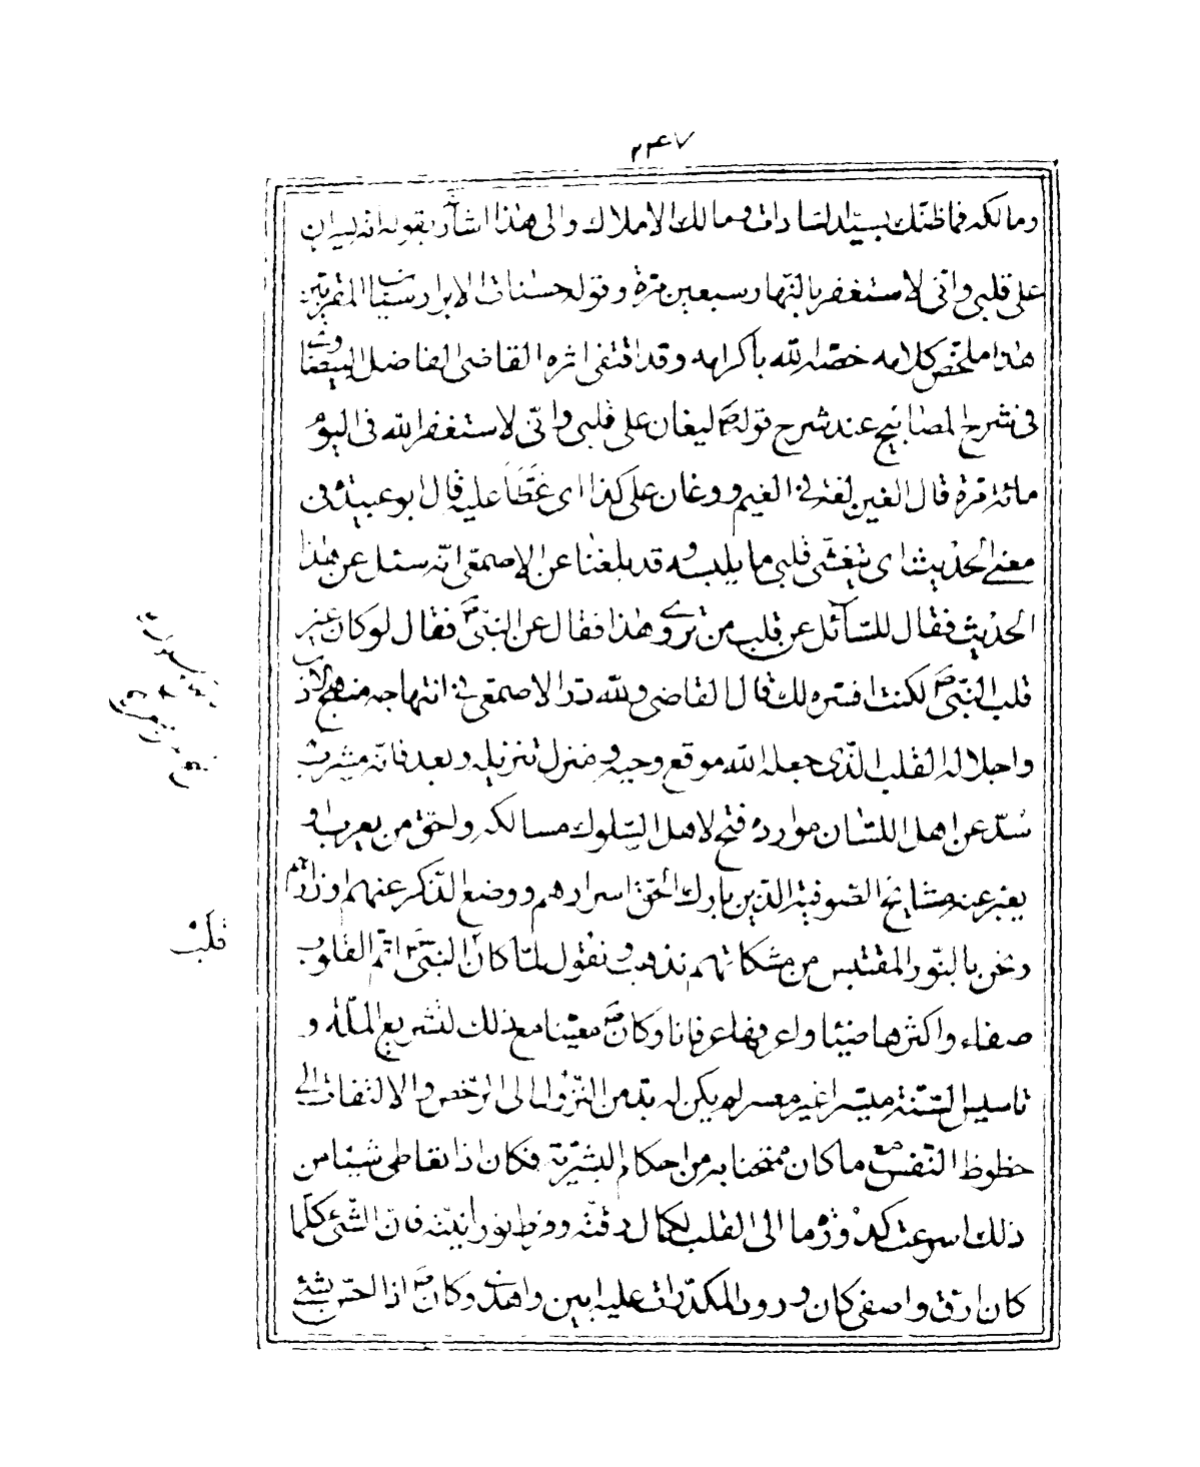 ۲۴۷
ومالكه فما ظنّك بسيّد السّادات ومالك الاملاك والى هذا اشار بقوله انه ليران
على قلبى وانى لاستغفر بالنّهار سبعين مرّة وقوله حسنات الابرار سيّئات المقربين
هذا ملخّص كلامه خصّه الله باكرامه وقد اقتفى اثره القاضى الفاضل البيضاوى
فى شرح المصابيح عند شرح قوله ص ليغان على قلبى وانّى لاستغفر الله فى اليوم
مائة مرّة قال الغين لغة فى الغيم وغان على كذا اى غطّا عليه قال ابو عبيدة فى
معنى الحديث اى يتغشّى قلبى ما يلبسه وقد بلغنا عن الاصمعى انّه سئل عن هذا
الحديث فقال للسّائل عن قلب من تروى هذا فقال عن النبّى ص فقال لو كان غير
قلب النبّى ص لكنت افسره لك قال القاضى ولله درّ الاصمعى فى انتهاجه منهج الادب
واجلاله القلب الّذى جعله الله موقع وحيه ومنزل تنزيله وبعد فانّه مشرب
سُدّ عن اهل اللسّان موارده فتح لاهل السّلوك مسالكه واحقّ من يعرب او
يعبّر عنه مشايخ الصّوفية الّذين بارك الحقّ اسرارهم ووضع الذّكر عنهم اوزارهم
ونحن بالنّور المقتبس من مشكاتهم نذهب ونقول لمّا كان النبّى ص اتمّ القلوب
صفاء واكثرها ضياء واعرفها عرفانا وكان ص معيّنا مع ذلك لتشريع الملّة و
تاسيس السّنّة ميسّرا غير معسّر لم يكن له بدّ من النّزول الى الرّخص والالتفات الى
حظوظ النّفس مع ما كان ممتحنا به من احكام البشريّة فكان اذا تعاطى شيئا من
ذلك اسرعت كدورة ما الى القلب لكمال رقّته وفرط نورانيّته فانّ الشّئ كلّما
كان ارقّ واصفى كان ورود المكدّرات عليه ابين واهدى وكان ص اذا احسّ بشئ
قلبه